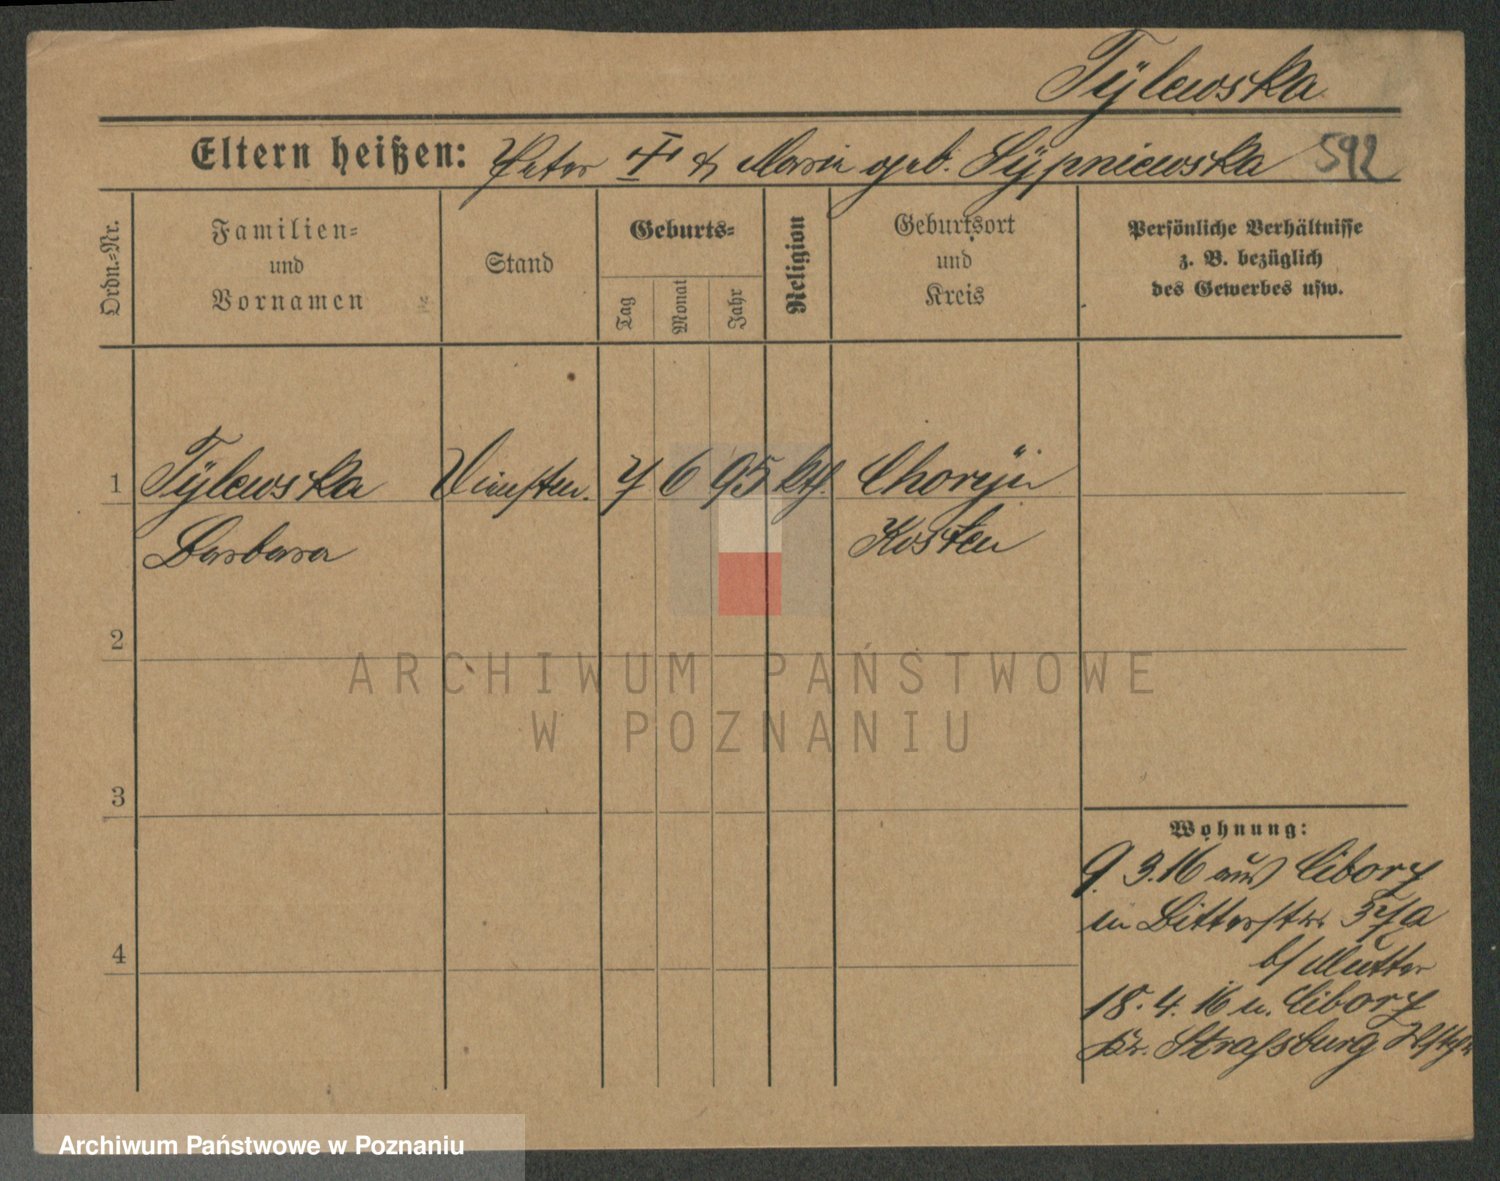 Tÿlewska
Eltern heißen: Peter † & Marie geb. Sÿpniewska 592
Ordn.-Nr.
Familien-
und
Vornamen
Stand
Geburts-
Tag
Monat
Jahr
Religion
Geburtsort
und
Kreis
Persönliche Verhältnisse
z. B. bezüglich
des Gewerbes usw.
1 Tÿlewska 7 6 95 kth. Chorÿn
Barbara Kosten
2
3
4
Wohnung:
9. 3. 16 aus Cibory
in Bitterstr. 37/a
b/ Mutter
18. 4. 16 n. Cibory
Kr. Strassburg
ARCHIWUM PAŃSTWOWE
W POZNANIU
Archiwum Państwowe w Poznaniu